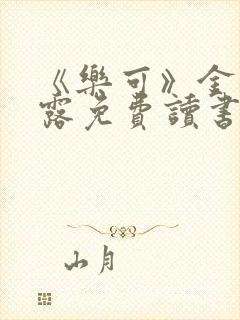 《樂可》全
露免費讀書
山月